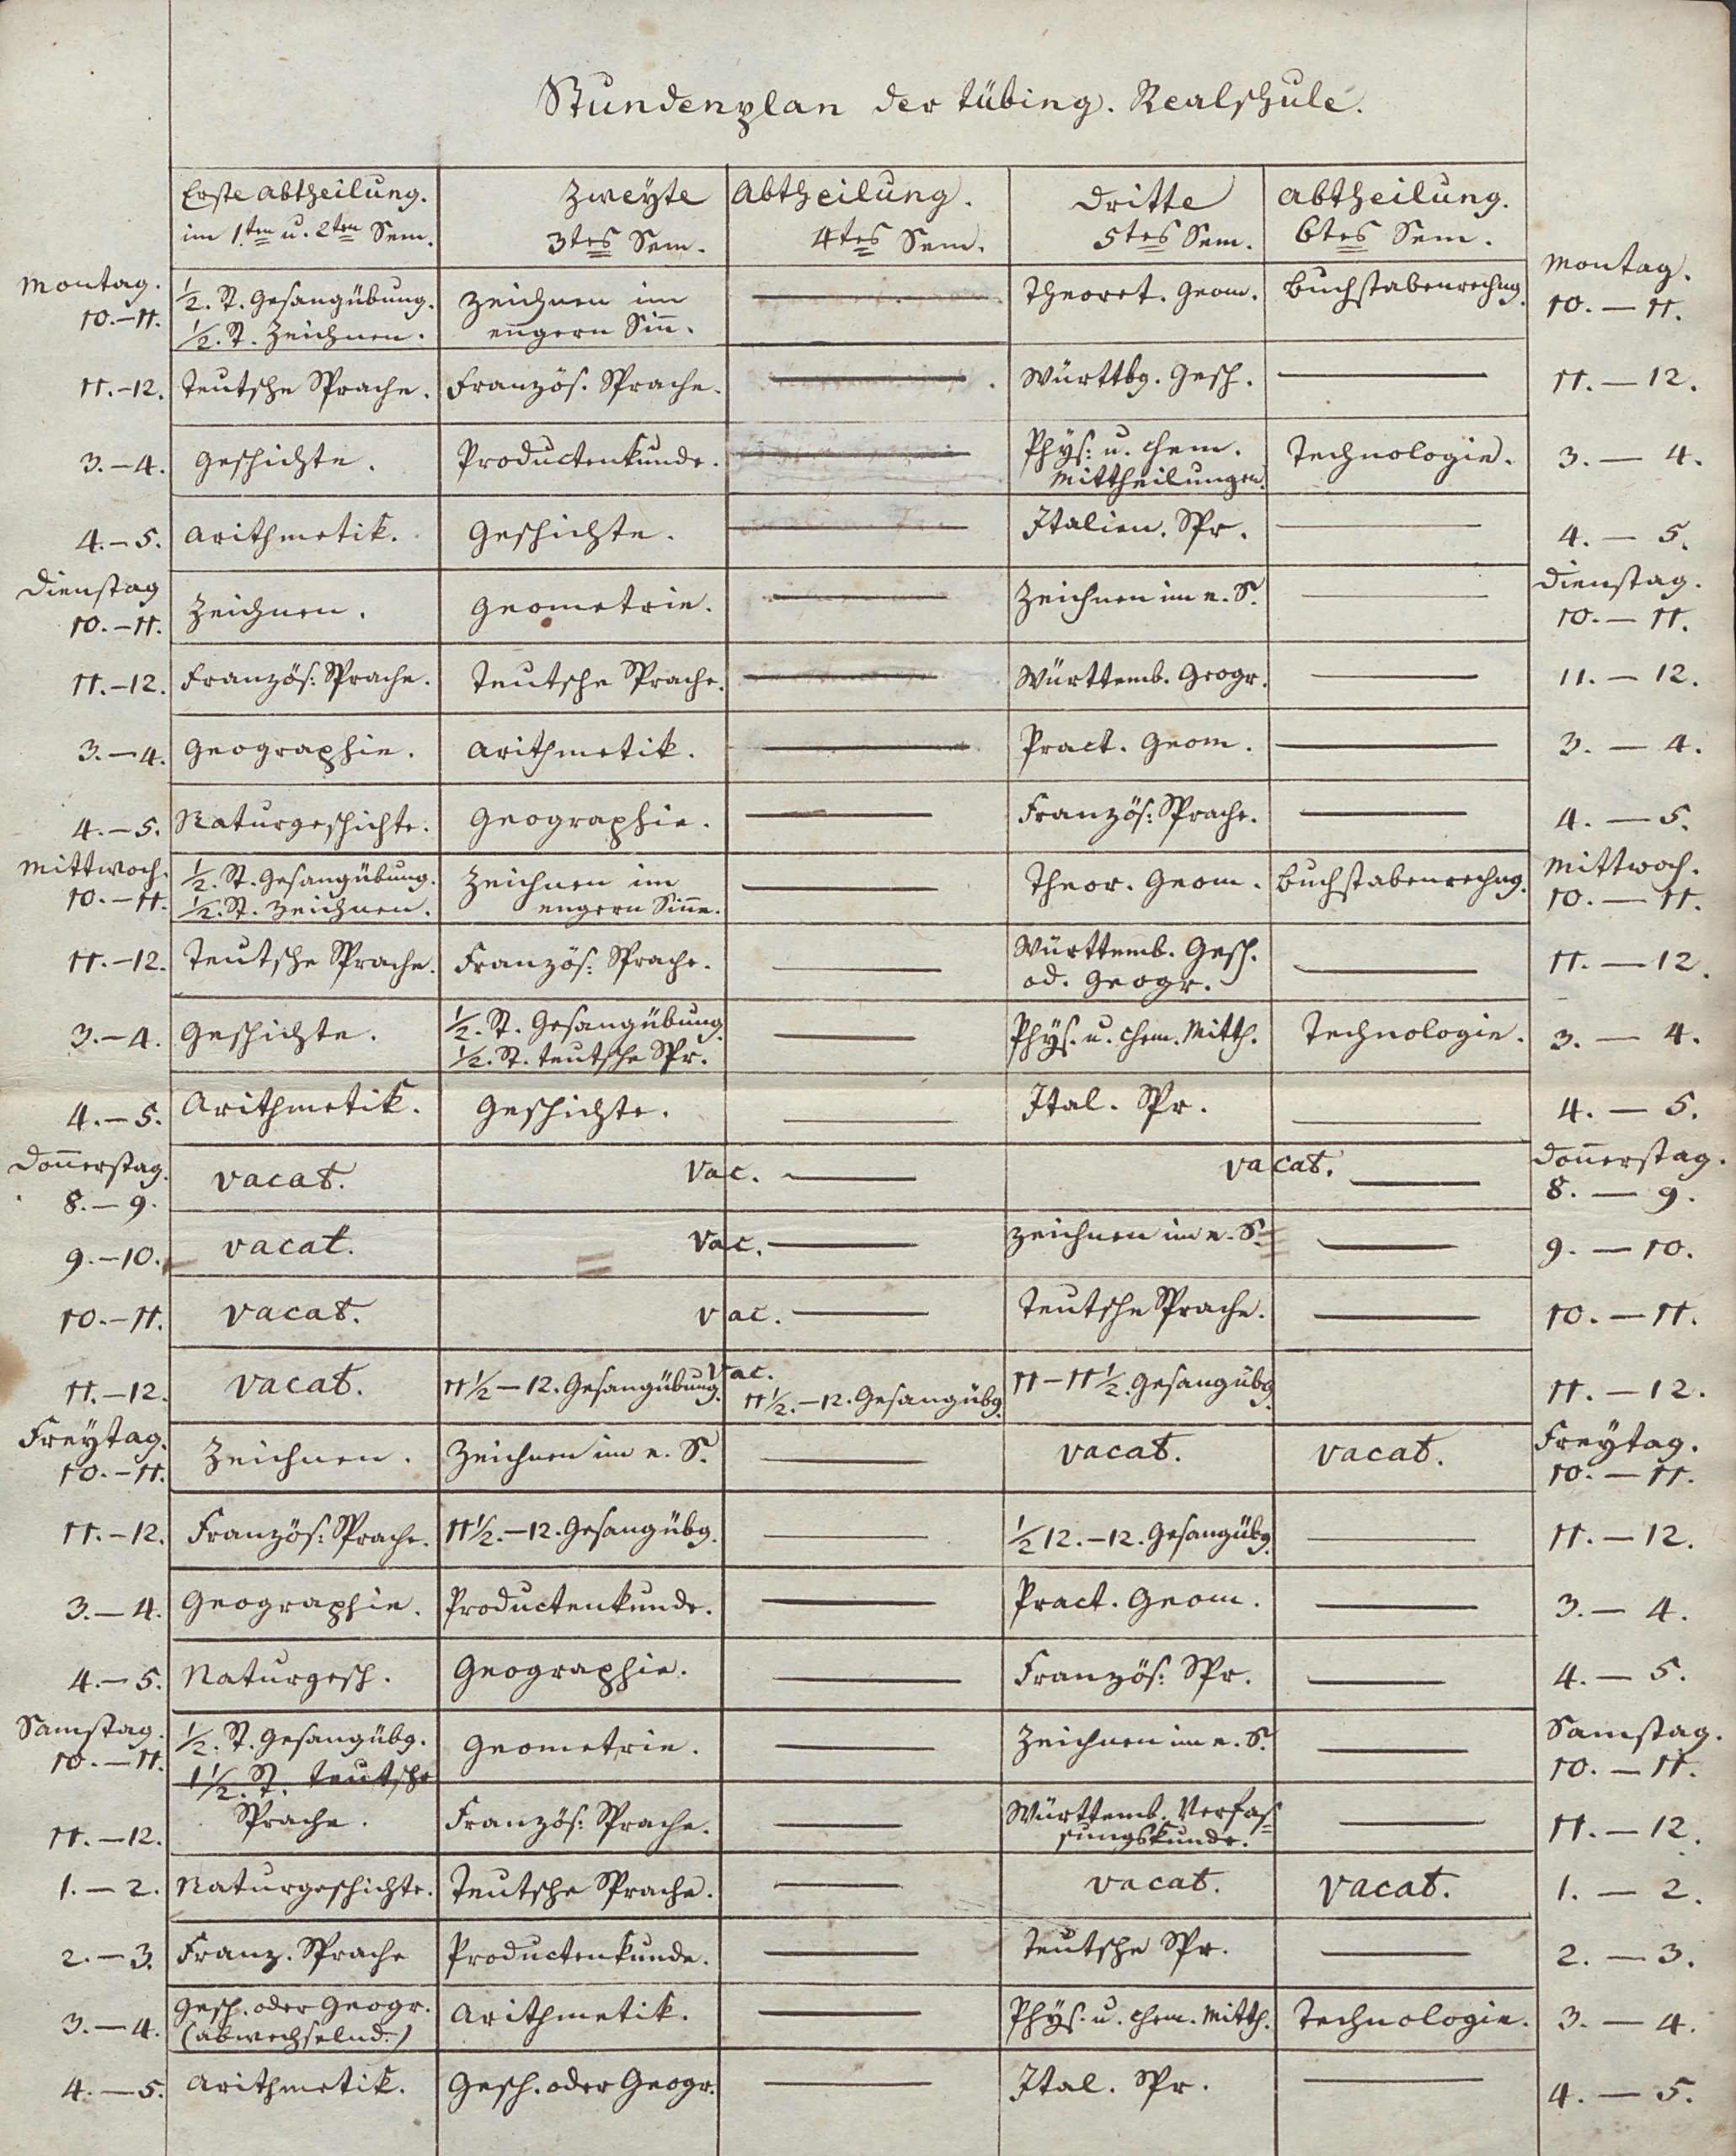 Stundenplan der tübing. Realschule.
Erste Abtheilung. Zweyte Abtheilung. Dritte Abtheilung.
im 1.ten u. 2ten Sem. 3tes Sem. 4tes Sem. 5tes Sem. 6tes Sem.
Montag. Montag.
10.–11. ½. St. Gesangübung. Zeichnen im — Theoret. Geom. Buchstabenrechng. 10.–11.
½. St. Zeichnen. engern Sin̄.
11.–12. Teutsche Sprache. Französ. Sprache. — Württbg. Gesch. — 11.–12.
3.–4. Geschichte. Productenkunde. — Phys: u. chem. Technologie. 3.–4.
Mittheilungen.
4.–5. Arithmetik. Geschichte. — Italien. Spr. — 4.–5.
Dienstag Dienstag.
10.–11. Zeichnen. Geometrie. — Zeichnen im e. S. — 10.–11.
11.–12. Französ: Sprache. Teutsche Sprache. — Württemb. Geogr. — 11.–12.
3.–4. Geographie. Arithmetik. — Pract. Geom. — 3.–4.
4.–5. Naturgeschichte. Geographie. — Französ: Sprache. — 4.–5.
Mittwoch. Mittwoch.
10.–11. ½. St. Gesangübung. Zeichnen im — Theor. Geom. Buchstabenrechng. 10.–11.
½. St. Zeichnen. engern Sin̄e.
11.–12. Teutsche Sprache. Französ: Sprache. — Württemb. Gesch. — 11.–12.
od. Geogr.
3.–4. Geschichte. ½. St. Gesangübung. — Phys. u. chem. Mitth. Technologie. 3.–4.
½. St. teutsche Spr.
4.–5. Arithmetik. Geschichte. — Ital. Spr. — 4.–5.
Don̄erstag. Don̄erstag.
8.–9. vacat. vac. — vacat. — 8.–9.
9.–10. vacat. vac. — Zeichnen im e. S. — 9.–10.
10.–11. vacat. vac. — Teutsche Sprache. — 10.–11.
11.–12. vacat. vac. 11.–12.
11½–12. Gesangübung. 11½.–12. Gesangübg. 11–11½. Gesangübg.
Freytag. Freytag.
10.–11. Zeichnen. Zeichnen im e. S. — vacat. vacat. 10.–11.
11.–12. Französ: Sprache. 11½.–12. Gesangübg. — ½12.–12. Gesangübg. — 11.–12.
3.–4. Geographie. Productenkunde. — Pract. Geom. — 3.–4.
4.–5. Naturgesch. Geographie. — Französ: Spr. — 4.–5.
Samstag. Samstag.
10.–11. ½. St. Gesangübg. Geometrie. — Zeichnen im e. S. — 10.–11.
1½. St. teutsche
11.–12. Sprache. Französ: Sprache. — Württemb. Verfas= — 11.–12.
sungskunde.
1.–2. Naturgeschichte. Teutsche Sprache. — vacat. vacat. 1.–2.
2.–3. Franz. Sprache Productenkunde. — Teutsche Spr. — 2.–3.
3.–4. Gesch. oder Geogr. Arithmetik. — Phys. u. chem. Mitth. Technologie. 3.–4.
(abwechselnd.)
4.–5. Arithmetik. Gesch. oder Geogr. — Ital. Spr. — 4.–5.